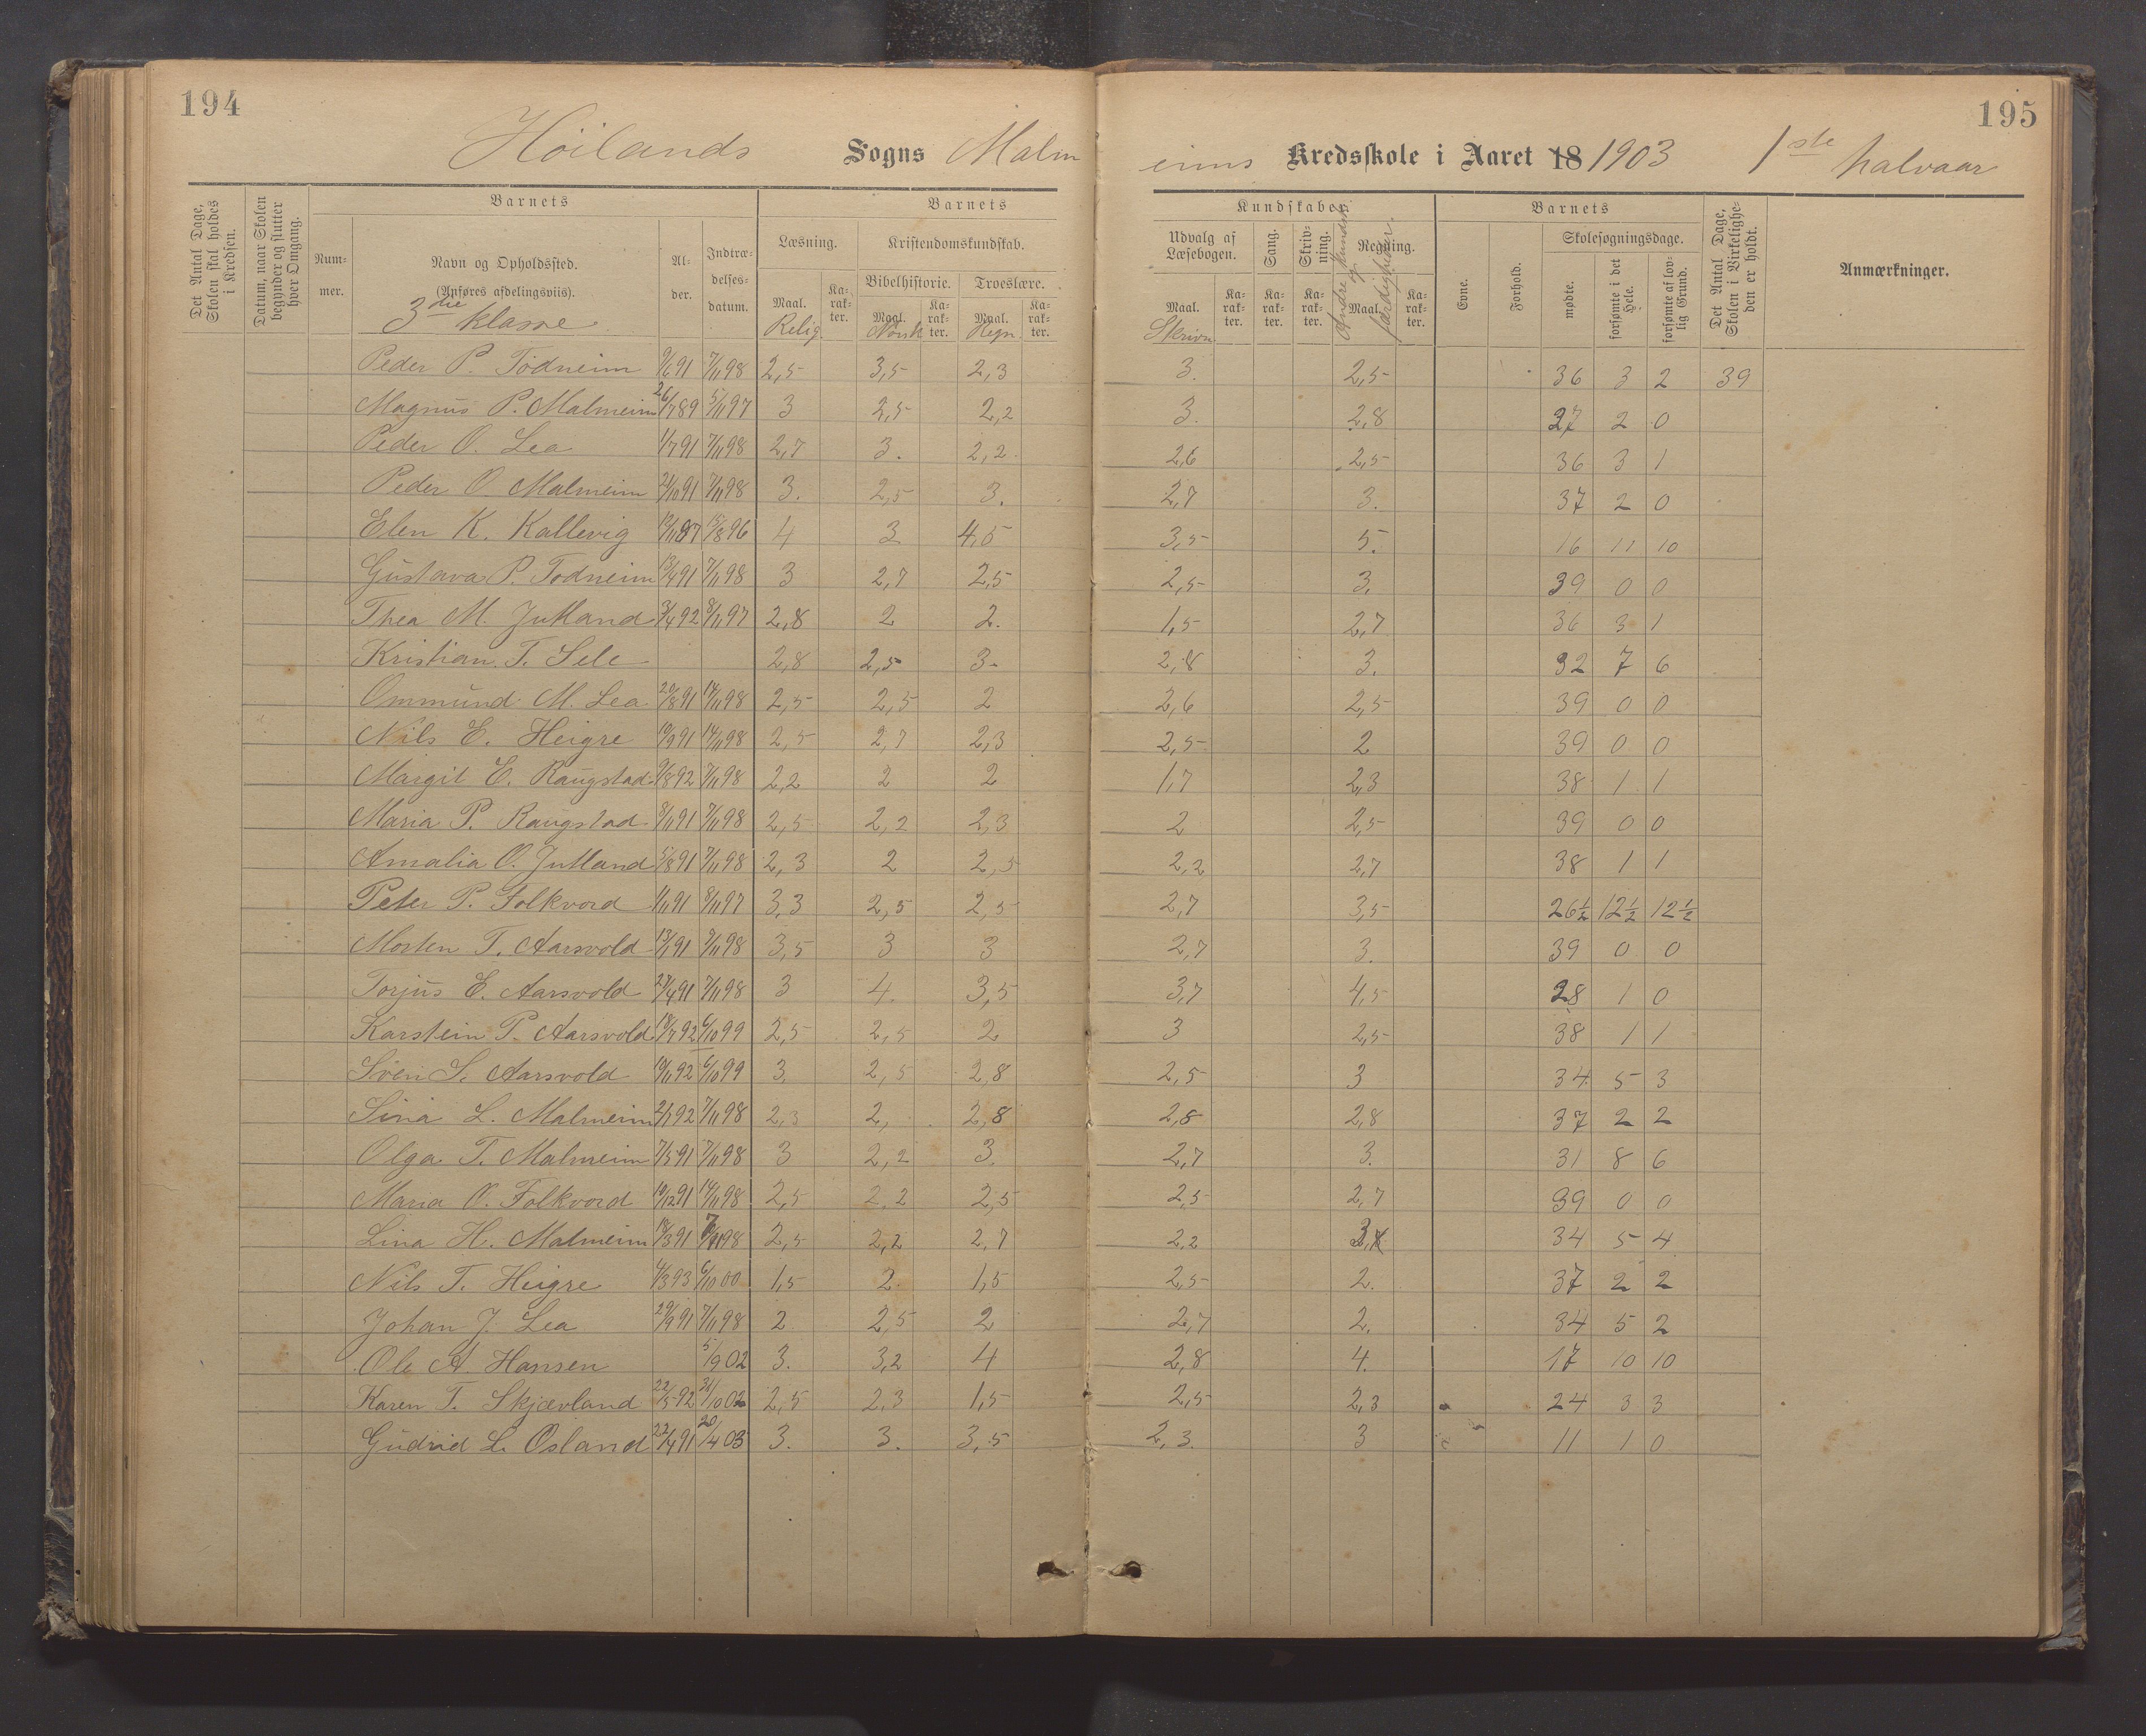 194
195
Høilands Sogns Malmeims Kredsskole i Aaret 18 1903 1ste halvaar
Det Antal Dage, Skolen skal holdes i Kredsen.
Datum, naar Skolen begynder og slutter hver Omgang.
Barnets
Nummer.
Navn og Opholdssted.
(Anføres afdelingsviis).
3die klasse
Alder.
Indtrædelsesdatum.
Barnets
Kundskaber.
Læsning.
Kristendomskundskab.
Bibelhistorie.
Troeslære.
Maal. Karakter. Maal. Karakter. Maal. Karakter.
Relig. Norsk Regn.
Udvalg af Læsebogen.
Sang.
Skrivning.
Regning.
Maal. Karakter. Karakter. Karakter. Maal. Karakter.
Skrivn
Andre kundsk og færdigheder.
Barnets
Evne.
Forhold.
Skolesøgningsdage.
mødte.
forsømte i det Hele.
forsømte af lovlig Grund.
Det Antal Dage, Skolen i Virkeligheden er holdt.
Anmærkninger.
Peder P. Todneim 9/6 91 7/11 98 2,5 3,5 2,3 3. 2,5 36 3 2 39
Magnus P. Malmeim 26/7 89 5/11 97 3 2,5 2,2 3. 2,8 37 2 0
Peder O. Lea 1/7 91 7/11 98 2,7 3. 2,2 2,6 2,5 36 3 1
Peder O. Malmeim 2/10 91 7/11 98 3. 2,5 3. 2,7 3. 37 2 0
Elen K. Kallevig 15/8 96 4 3 4,5 3,5 5. 16 11 10
Gustava P. Todneim 13/4 91 7/11 98 3 2,7 2,5 2,5 3. 39 0 0
Thea M. Jutland 3/4 92 8/11 97 2,8 2 2. 1,5 2,7 36 3 1
Kristian T. Sele 2,8 2,5 3. 2,8 3. 32 7 6
Ommund M. Lea 20/8 91 14/11 98 2,5 2,5 2 2,6 2,5 39 0 0
Nils E. Heigre 19/9 91 14/11 98 2,5 2,7 2,3 2,5 2 39 0 0
Margit E. Raugstad 9/8 92 7/11 98 2,2 2 2 1,7 2,3 38 1 1
Maria P. Raugstad 8/11 91 7/11 98 2,5 2,2 2,3 2 2,5 39 0 0
Amalia O. Jutland 5/8 91 7/11 98 2,3 2 2,5 2,2 2,7 38 1 1
Peter P. Folkvord 1/11 91 8/11 97 3,3 2,5 2,5 2,7 3,5 26½ 12½ 12½
Morten T. Aarsvold 13/1 91 7/11 98 3,5 3 3 2,7 3. 39 0 0
Torjus E. Aarsvold 27/4 91 7/11 98 3 4. 3,5 3,7 4,5 28 1 0
Karstein P. Aarsvold 18/7 92 6/10 99 2,5 2,5 2 3 2,5 38 1 1
Sven S. Aarsvold 19/11 92 6/10 99 3 2,5 2,8 2,5 3 34 5 3
Sina L. Malmeim 2/1 92 7/11 98 2,3 2, 2,8 2,8 2,8 37 2 2
Olga T. Malmeim 7/5 91 7/11 98 3 2,2 3. 2,7 3. 31 8 6
Maria O. Folkvord 19/12 91 14/11 98 2,5 2,2 2,5 2,5 2,7 39 0 0
Lina H. Malmeim 18/3 91 7/11 98 2,5 2,2 2,7 2,2 3, 34 5 4
Nils T. Heigre 4/3 93 6/10 00 1,5 2. 1,5 2,5 2. 37 2 2
Johan J. Lea 29/9 91 7/11 98 2 2,5 2 2,7 2. 34 5 2
Ole A. Hansen 5/9 02 3. 3,2 4 2,8 4. 17 10 10
Karen T. Skjævland 22/5 92 31/10 02 2,5 2,3 1,5 2,5 2,3 24 3 3
Gudrid L. Osland 22/4 91 20/4 03 3. 3. 3,5 2,3. 3 11 1 0